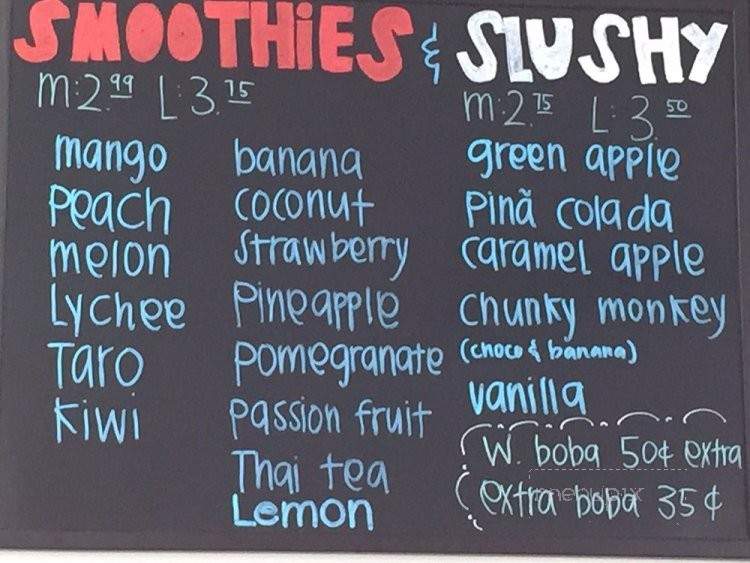 SMOOTHIES & SLUSHY
M:2.99 L:3.75
mango
Peach
melon
Lychee
Taro
Kiwi
banana
coconut
Strawberry
Pineapple
pomegranate
passion fruit
Thai tea
Lemon
M:2.75 L:3.50
green apple
Pinã colada
caramel apple
chunky monkey
(choco & banana)
vanilla
W. boba 50¢ extra
extra boba 35¢
menupix